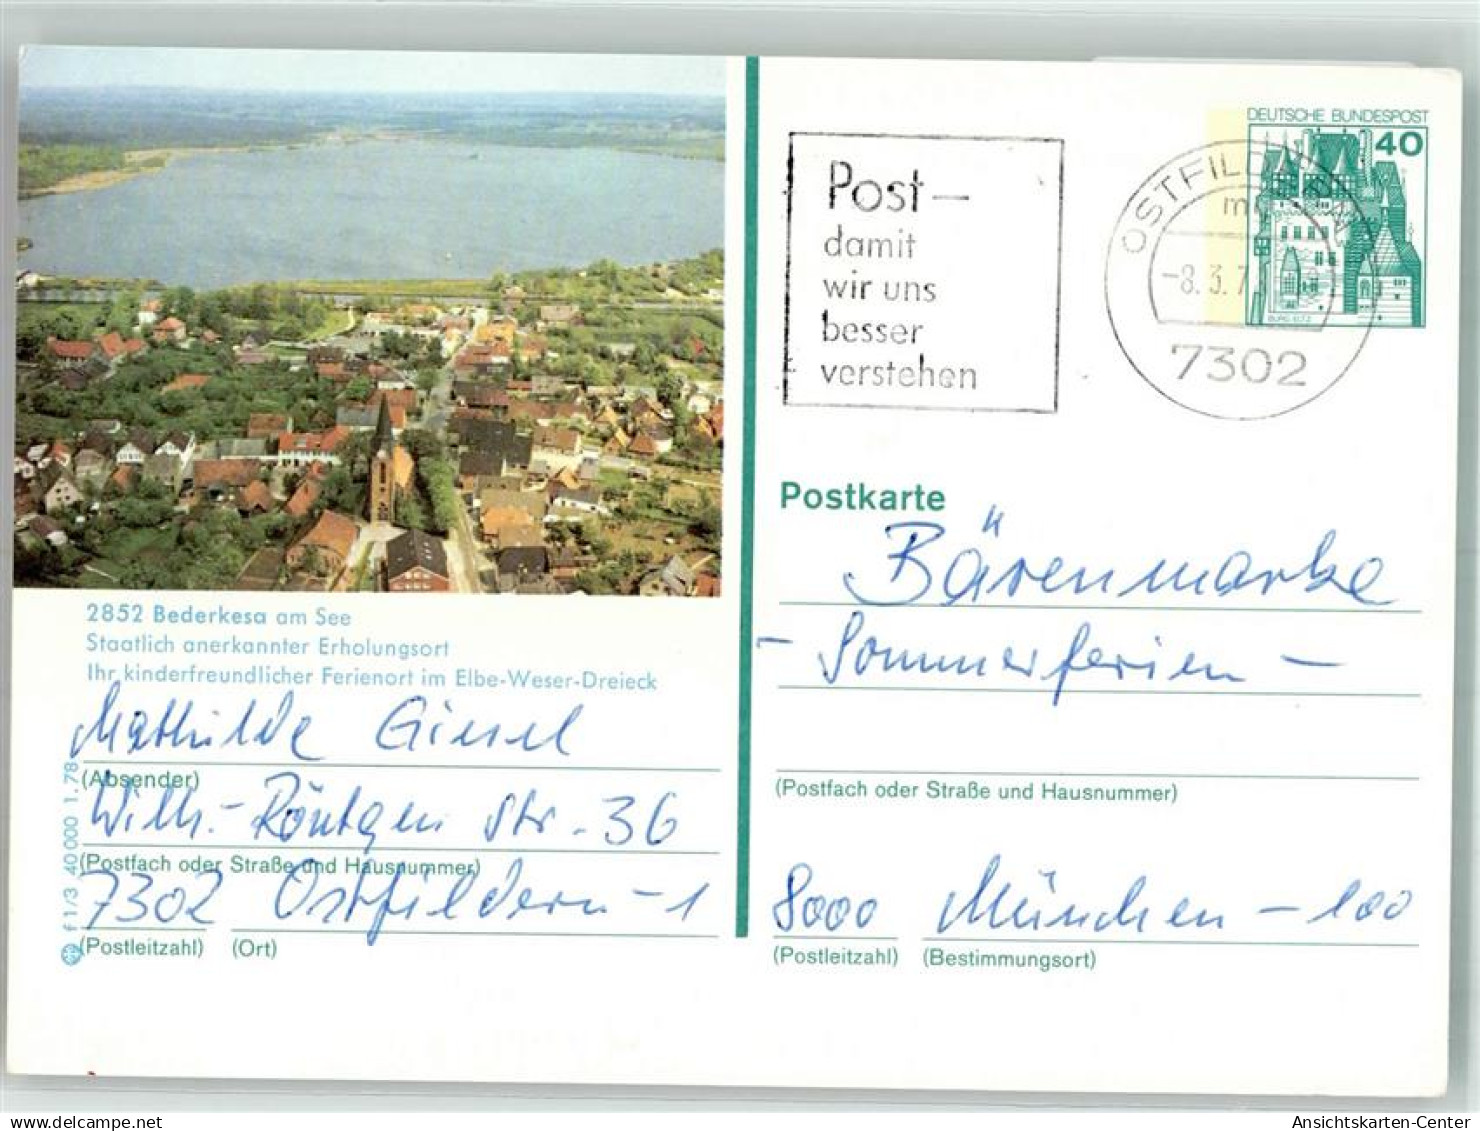 DEUTSCHE BUNDESPOST
40
BURG ELTZ
Post –
damit
wir uns
besser
verstehen
-8.3.7
7302
Postkarte
Bärenmarke
- Sommerferien -
(Postfach oder Straße und Hausnummer)
8000 München - 100
(Postleitzahl) (Bestimmungsort)
2852 Bederkesa am See
Staatlich anerkannter Erholungsort
Ihr kinderfreundlicher Ferienort im Elbe-Weser-Dreieck
Mathilde Giesel
(Absender)
Wilh.-Röntgen Str. 36
(Postfach oder Straße und Hausnummer)
7302 Ostfildern - 1
(Postleitzahl) (Ort)
f 1/3 40 000 1.78
AnsichtsKarten-Center